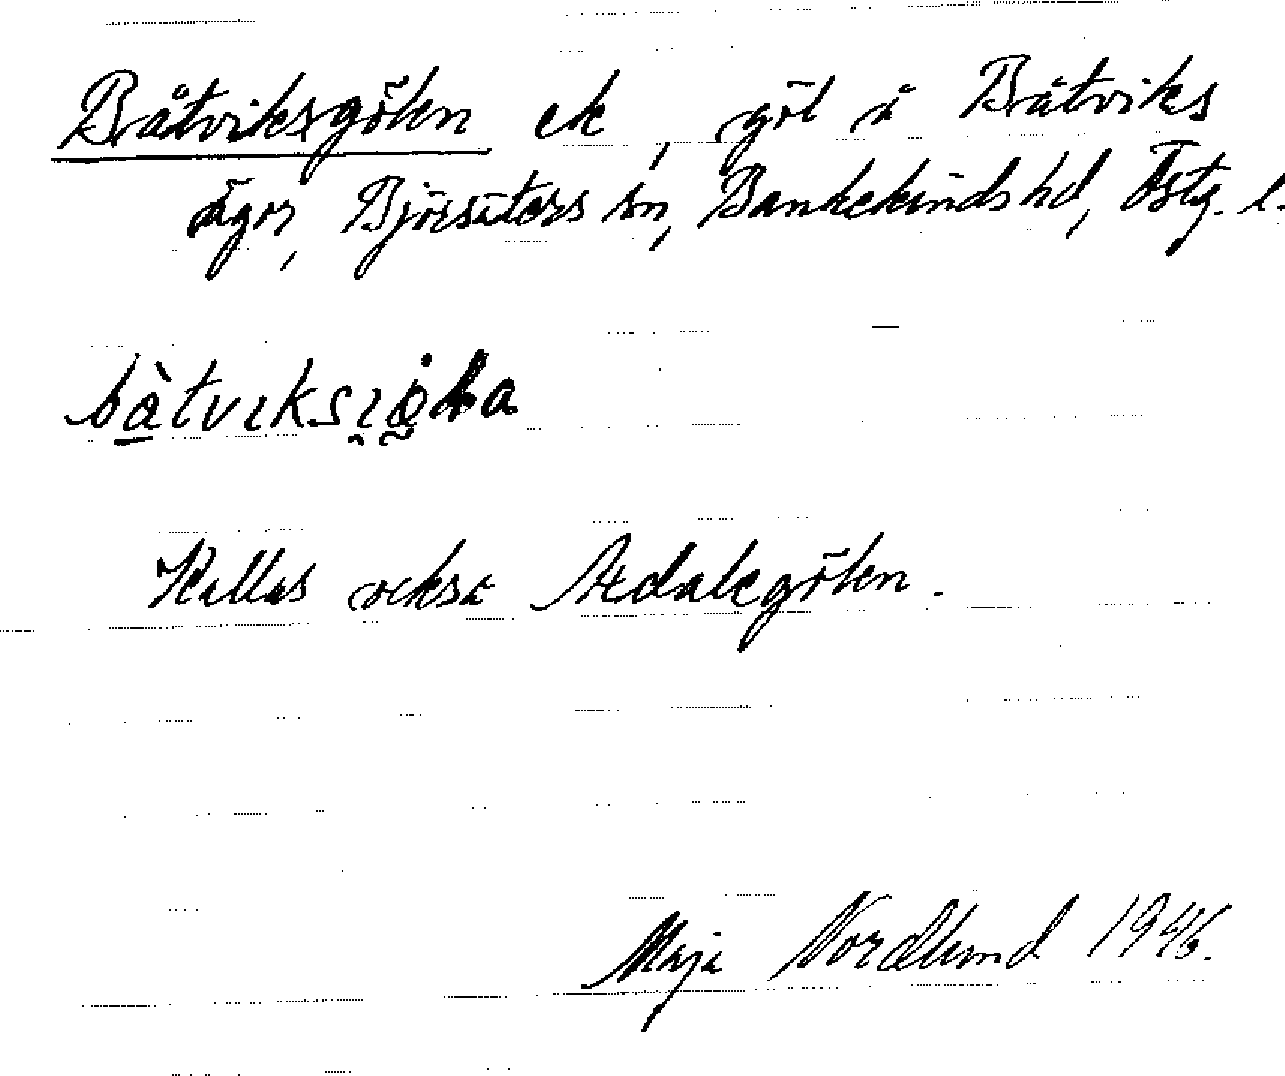 Båtviksgölen ek, göl å Båtviks
ägor, Björsäters sn, Bankekinds hd, Östg. l.
Kallas också Adalegölen.
Maja Nordlund 1946.